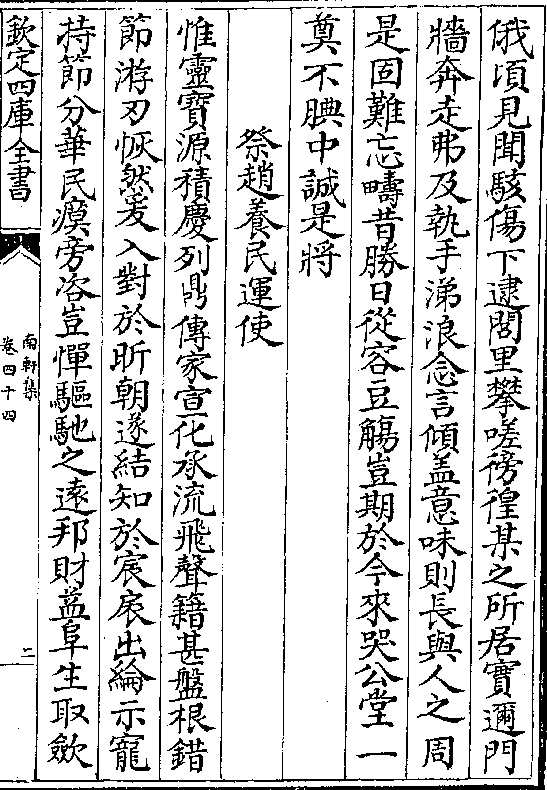 俄頃見聞駭傷下逮閭里攀嗟徬徨某之所居實邇門
牆奔走弗及執手涕浪念言傾盖意味則長與人之周
是固難忘疇昔勝日從容豆觴豈期於今來哭公堂一
奠不腆中誠是將
祭趙養民運使
惟靈寶源積慶列鼎傳家宣化承流飛聲籍甚盤根錯
節游刃恢然爰入對於昕朝遂結知於宸扆出綸示寵
持節分華民瘼旁咨豈憚驅馳之遠邦財益阜生取斂
欽定四庫全書
南軒集
卷四十四
二